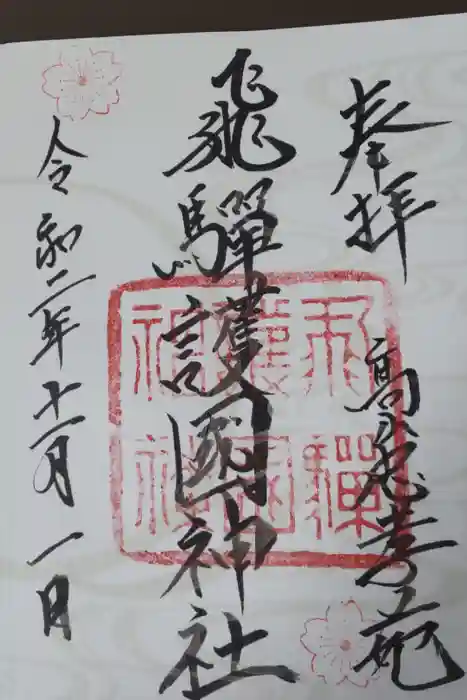 奉拝
高山忠孝苑
飛驒護國神社
飛驒
護國
神社
令和二年十一月一日